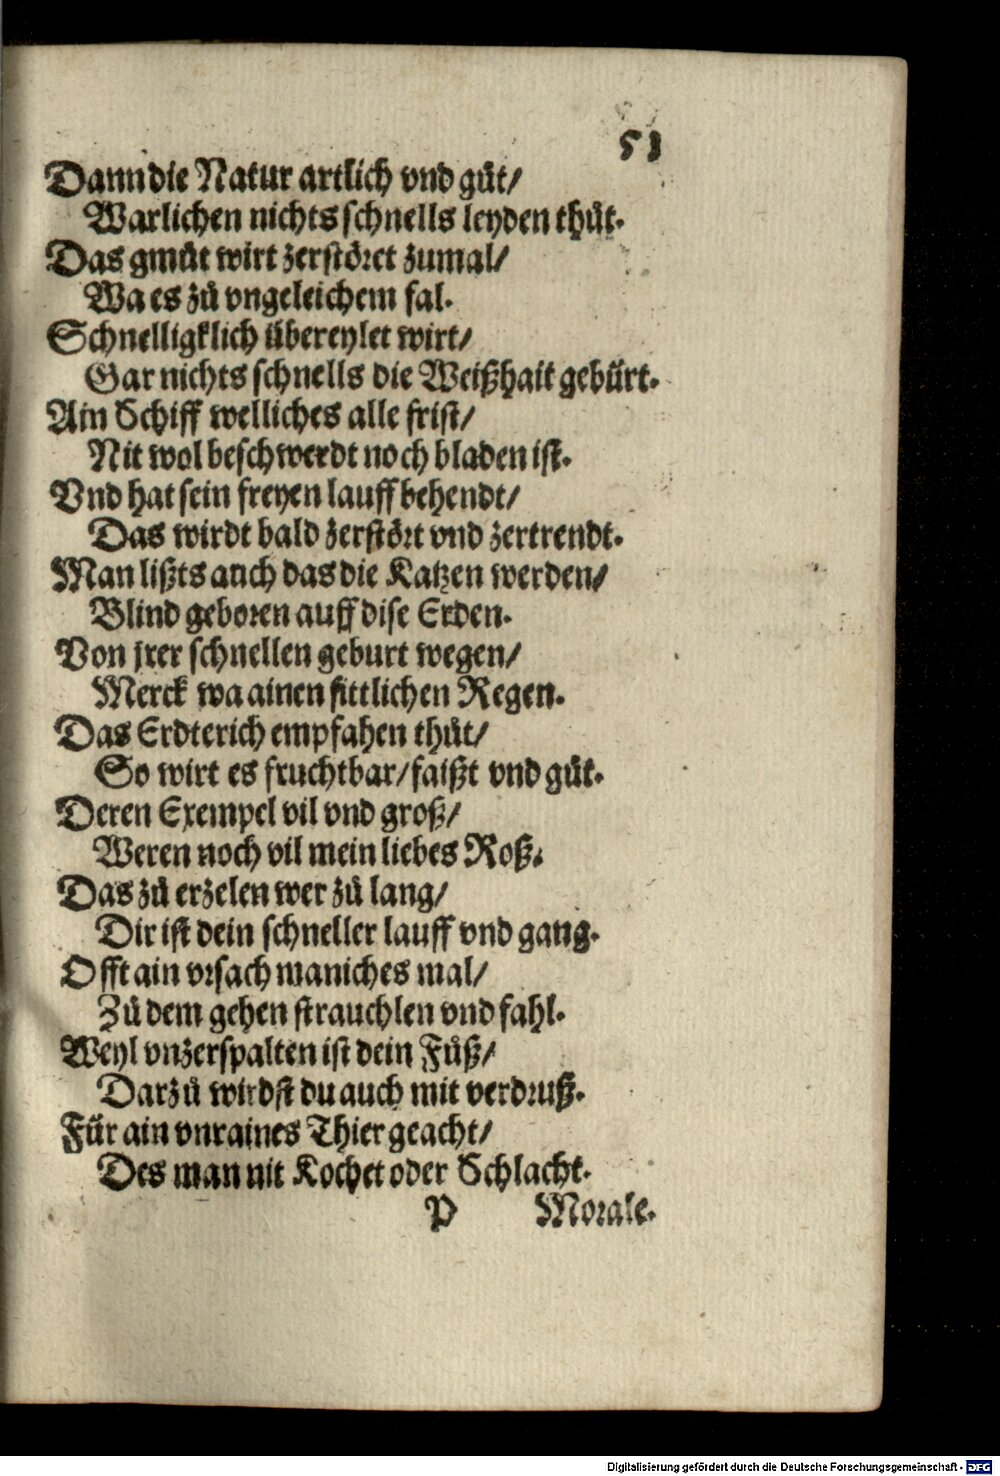 53
Dann die Natur artlich vnd gůt/
Warlichen nichts schnells leyden thůt.
Das gmůt wirt zerstöret zumal/
Wa es zů vngeleichem fal.
Schnelligklich übereylet wirt/
Gar nichts schnells die Weißhait gebürt.
Ain Schiff welliches alle frist/
Nit wol beschwerdt noch bladen ist.
Vnd hat sein freyen lauff behendt/
Das wirdt bald zerstört vnd zertrendt.
Man lißts auch das die Katzen werden/
Blind geboren auff dise Erden.
Von jrer schnellen geburt wegen/
Merck wa ainen sittlichen Regen.
Das Erdterich empfahen thůt/
So wirt es fruchtbar/faißt vnd gůt.
Deren Exempel vil vnd groß/
Weren noch vil mein liebes Roß.
Das zů erzelen wer zů lang/
Dir ist dein schneller lauff vnd gang.
Offt ain vrsach maniches mal/
Zů dem gehen strauchlen vnd fahl.
Weyl vnzerspalten ist dein Fůß/
Darzů wirdst du auch mit verdruß.
Für ain vnraines Thier geacht/
Des man nit Kochet oder Schlacht.
P Morale.
Digitalisierung gefördert durch die Deutsche Forschungsgemeinschaft - DFG